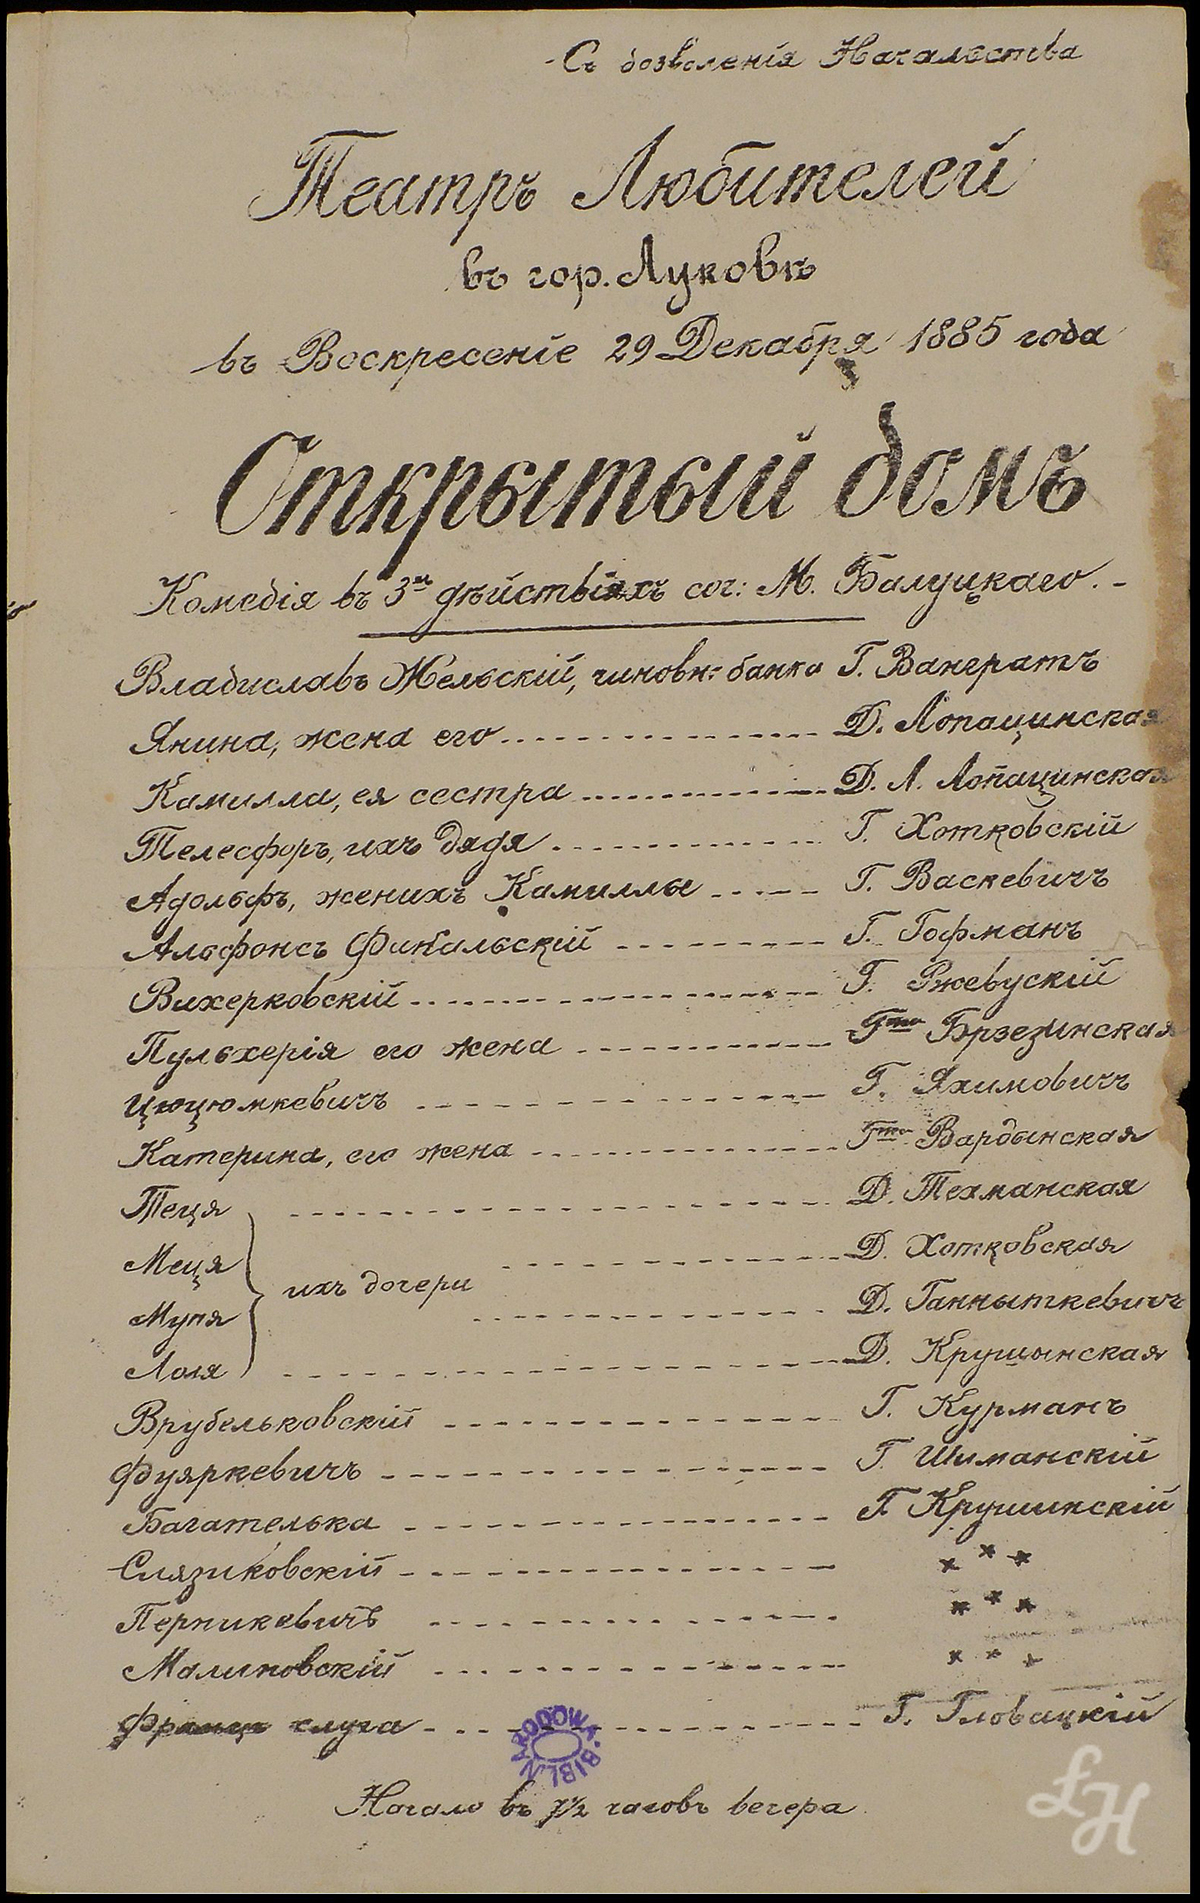 Съ дозволенія Начальства
Театръ Любителей
въ гор. Луковѣ
въ Воскресеніе 29 Декабря 1885 года
Открытый домъ
Комедія въ 3хъ дѣйствіяхъ соч: М. Балуцкаго. -
Владиславъ Жельскій, чиновн: банка Г. Вангратъ
Янина, жена его Д. Лопацинская
Камилла, ея сестра Д. Л. Лопацинская
Телесфоръ, ихъ дядя Г. Хотковскій
Адольфъ, женихъ Камиллы Г. Васкевичъ
Альфонсъ Фикальскій Г. Гофманъ
Вихерковскій Г. Ржевускій
Пульхерія его жена Гжа Брзезинская
Цюцюмкевичъ Г. Яхимовичъ
Катерина, его жена Гжа Вардынская
Теця Д. Техманская
Меця Д. Хотковская
ихъ дочери
Муня Д. Ганныткевичъ
Лоля Д. Крушынская
Врубельковскій Г. Курманъ
Фуяркевичъ Г. Шиманскій
Багателька Г. Крушинскій
Слязиковскій * * *
Перникевичъ * * *
Малиновскій * * *
Францъ слуга Г. Гловацкій
NARODOWA BIBL.
Начало въ 7½ часовъ вечера
ŁH